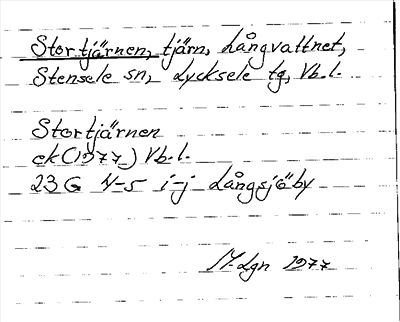 Stortjärnen, tjärn, Långvattnet,
Stensele sn, Lycksele tg, Vb.l.
Stortjärnen
ek (1977) Vb.l.
23 G 4-5 i-j Långsjöby
M.Lgn 1977